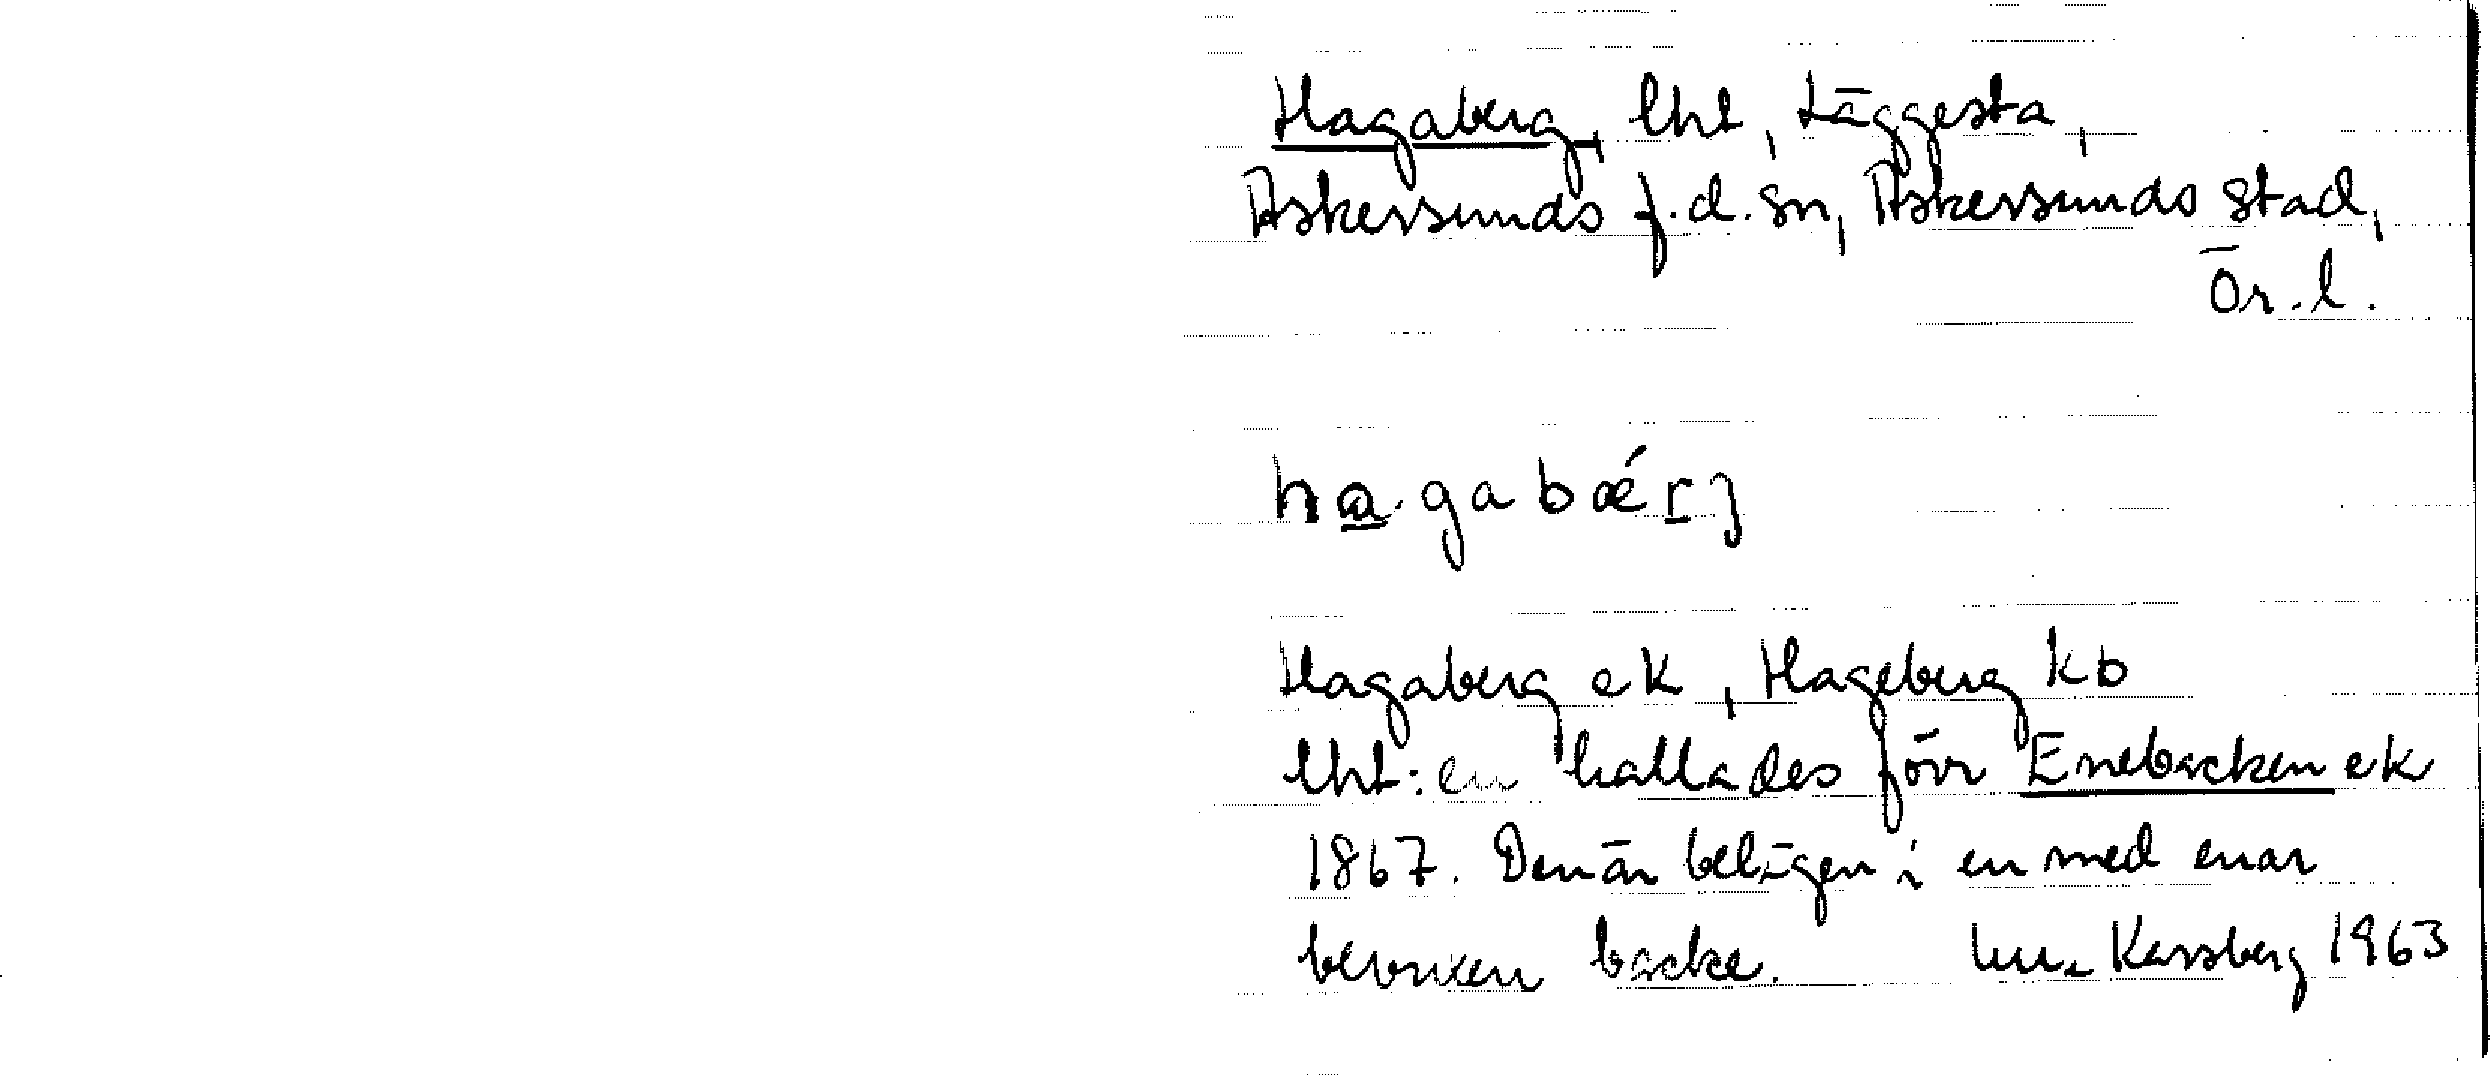 Hagaberg, lht, Läggesta,
Askersunds f.d. sn, Askersunds stad,
Ör. l.
hagabǽrj
Hagaberg ek, Hageberg kb
lht:en kallades förr Enebacken ek
1867. Den är belägen i en med enar
bevuxen backe. Karsberg 1963